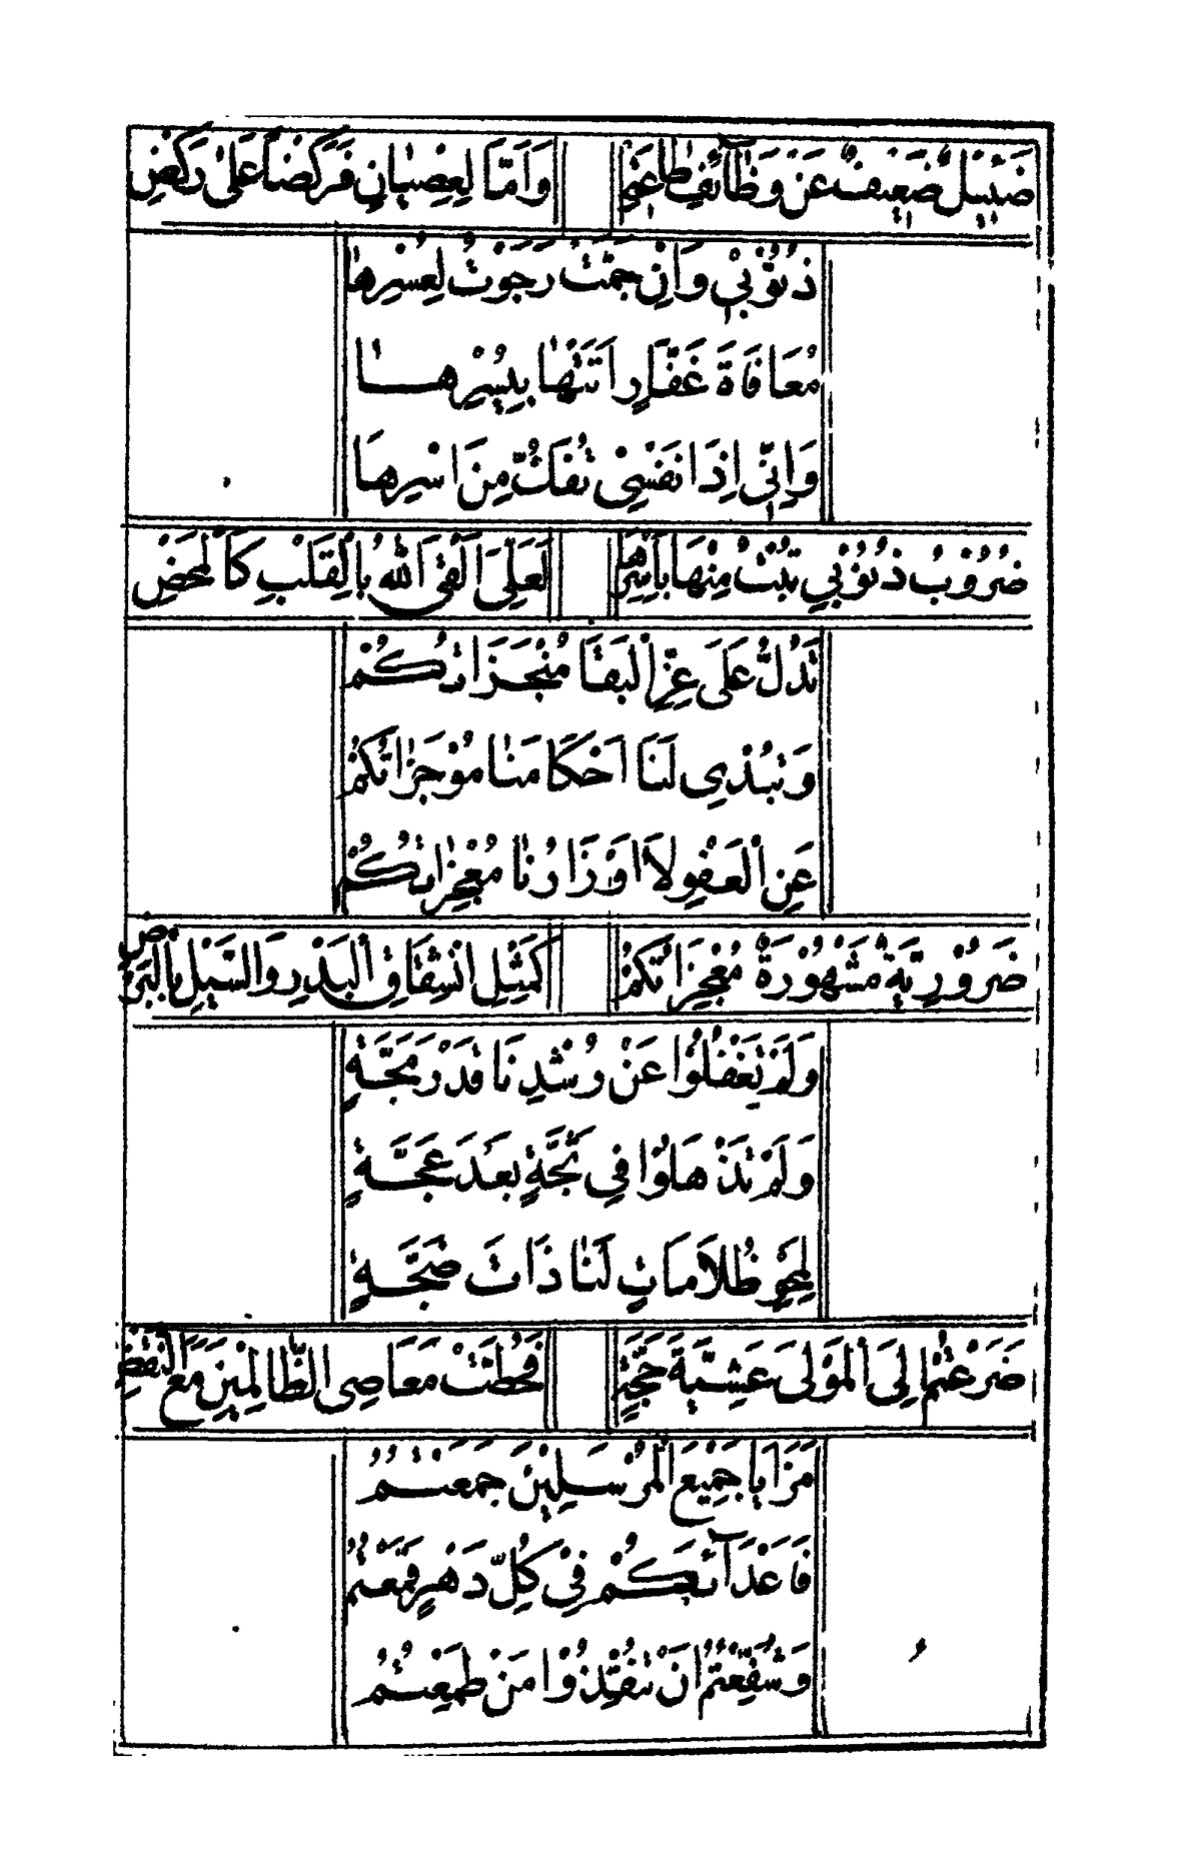 ضَئِيلٌ ضَعِيفٌ عَنْ وَظَآئِفِ طَاعَتِي وَاَمَّا لِعِصْيَانٍ فَرَكْضًا عَلٰى رَكْضِ
ذُنُوْبِيْ وَاِنْ جَمَّتْ رَجَوْتُ لِعُسْرِهَا
مُعَافَاةَ غَفَّارٍ اَتَتْهَا بِيُسْرِهَا
وَاِنِّي اِذَا نَفْسِىْ تُفَكُّ مِنَ اسْرِهَا
ضُرُوْبُ ذُنُوْبِي تُبْتُ مِنْهَا بِاَسْرِهَا لَعَلِّىَ اَلْقَى اللهَ بِالْقَلْبِ كَالْمَحْضِ
تَدُلُّ عَلَى عِزِّ الْبَقَا مُنْجَزَاتُكُمْ
وَتُبْدِى لَنَا اَحْكَامَنَا مُوْجَزَاتُكُمْ
عَنِ الْعَفْوِ لَا اَوْزَارُنَا مُعْجِزَاتُكُمْ
ضَرُوْرِيَّةٌ مَشْهُوْرَةٌ مُعْجِزَاتُكُمْ كَمِثْلِ انْشِقَاقِ الْبَدْرِ وَالسَّيْلِ بِالْبَرْضِ
وَلَمْ تَغْفُلُوْا عَنْ رُشْدِنَا قَدْرَ مَجَّةٍ
وَلَمْ تَذْهَلُوْا فِي ثَجَّةٍ بَعْدَ عَجَّةٍ
لِمَحْوِ ظُلَامَاتٍ لَنَا ذَاتَ ضَجَّةٍ
ضَرَعْتُمْ اِلَى الْمَوْلَى عَشِيَّةَ حَجَّةٍ فَحُطَّتْ مَعَاصِى الظَّالِمِيْنَ مَعَ النَّقْضِ
مَزَايَا جَمِيْعِ الْمُرْسَلِيْنَ جَمَعْتُمُ
فَاَعْدَآئَكُمْ فِيْ كُلِّ دَهْرٍ قَمَعْتُمُ
وَشُفِّعْتُمُ اَنْ تُنْقِذُوْا مَنْ طَمِعْتُمُ